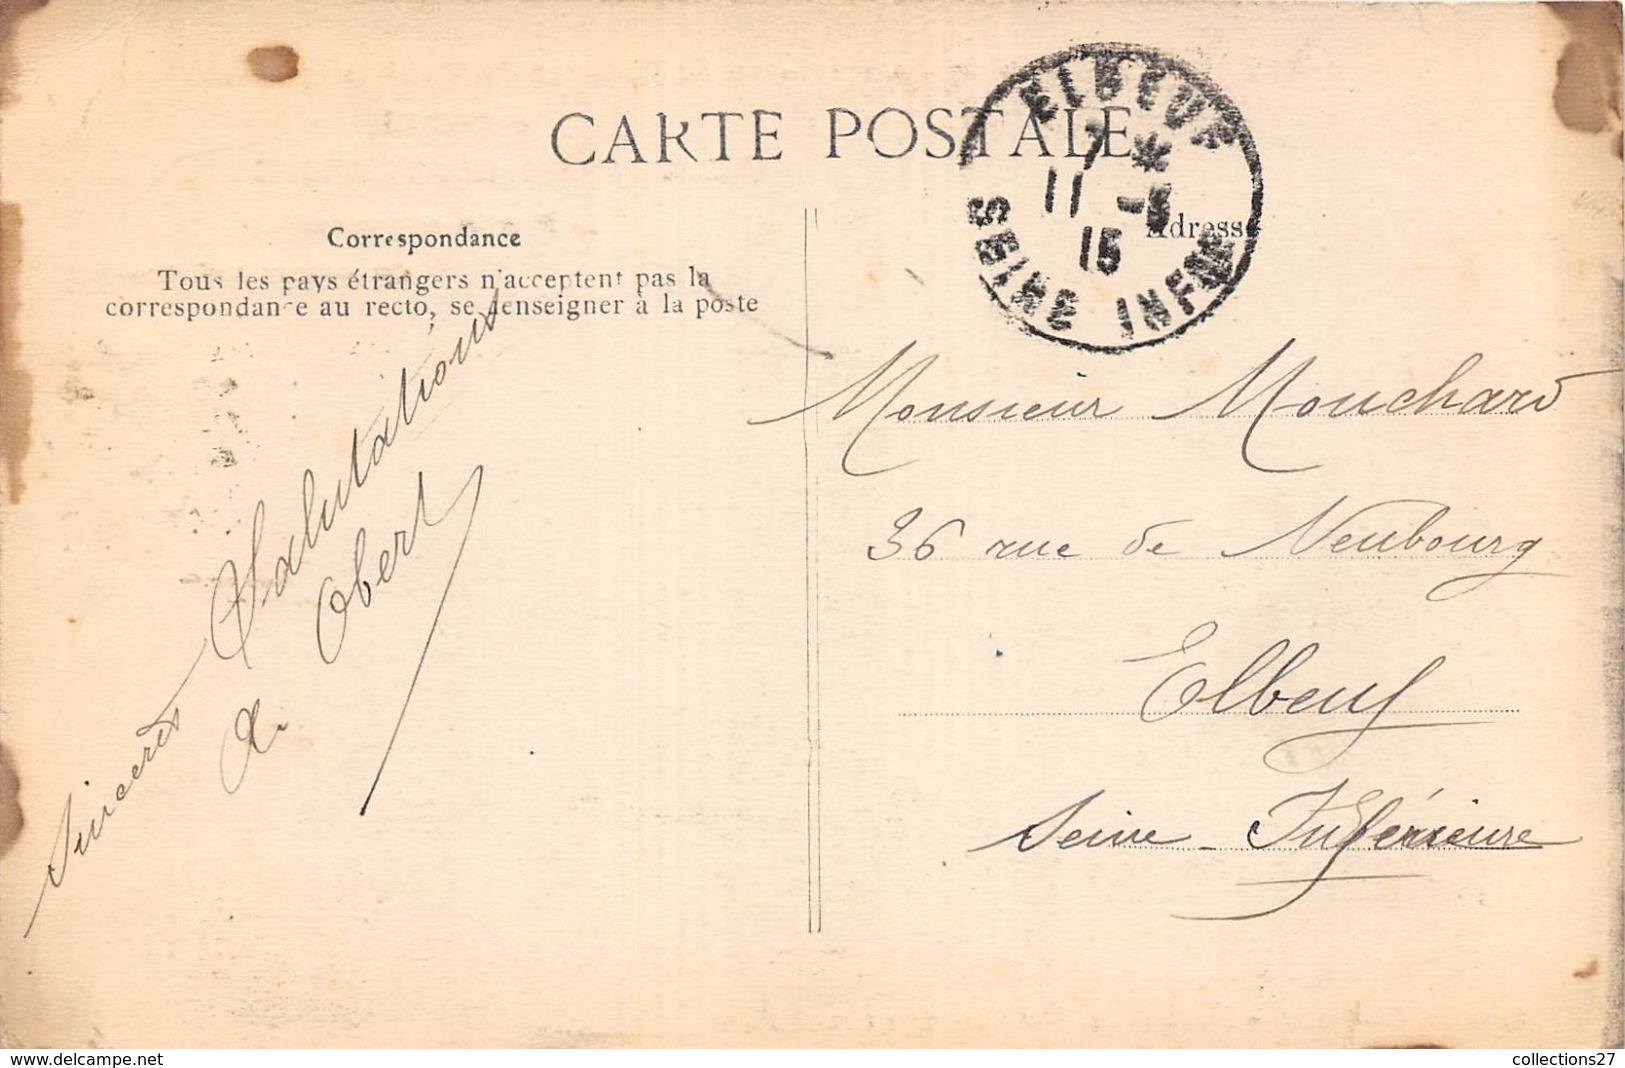 CARTE POSTALE
ELBEUF
7 *
11 -5
15
SEINE INFRE
Correspondance
Adresse
Tous les pays étrangers n'acceptent pas la
correspondance au recto, se renseigner à la poste
Sincères Salutations
A. Obert
Monsieur Mouchard
36 rue de Neubourg
Elbeuf
Seine-Inférieure
www.delcampe.net
collections27